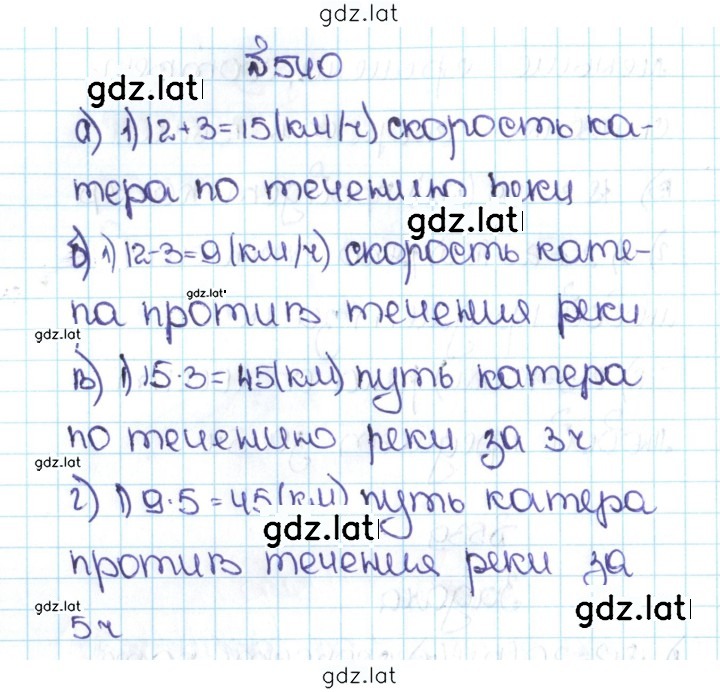 gdz.lat
№540
gdz.lat
а) 1) 12+3=15(км/ч) скорость ка-
тера по течению реки
gdz.lat
б) 1) 12-3=9(км/ч) скорость кате-
gdz.lat
ра против течения реки
gdz.lat
в) 1) 15·3=45(км) путь катера
по течению реки за 3ч
gdz.lat
г) 1) 9·5=45(км) путь катера
gdz.lat
против течения реки за
gdz.lat
gdz.lat
5ч
gdz.lat